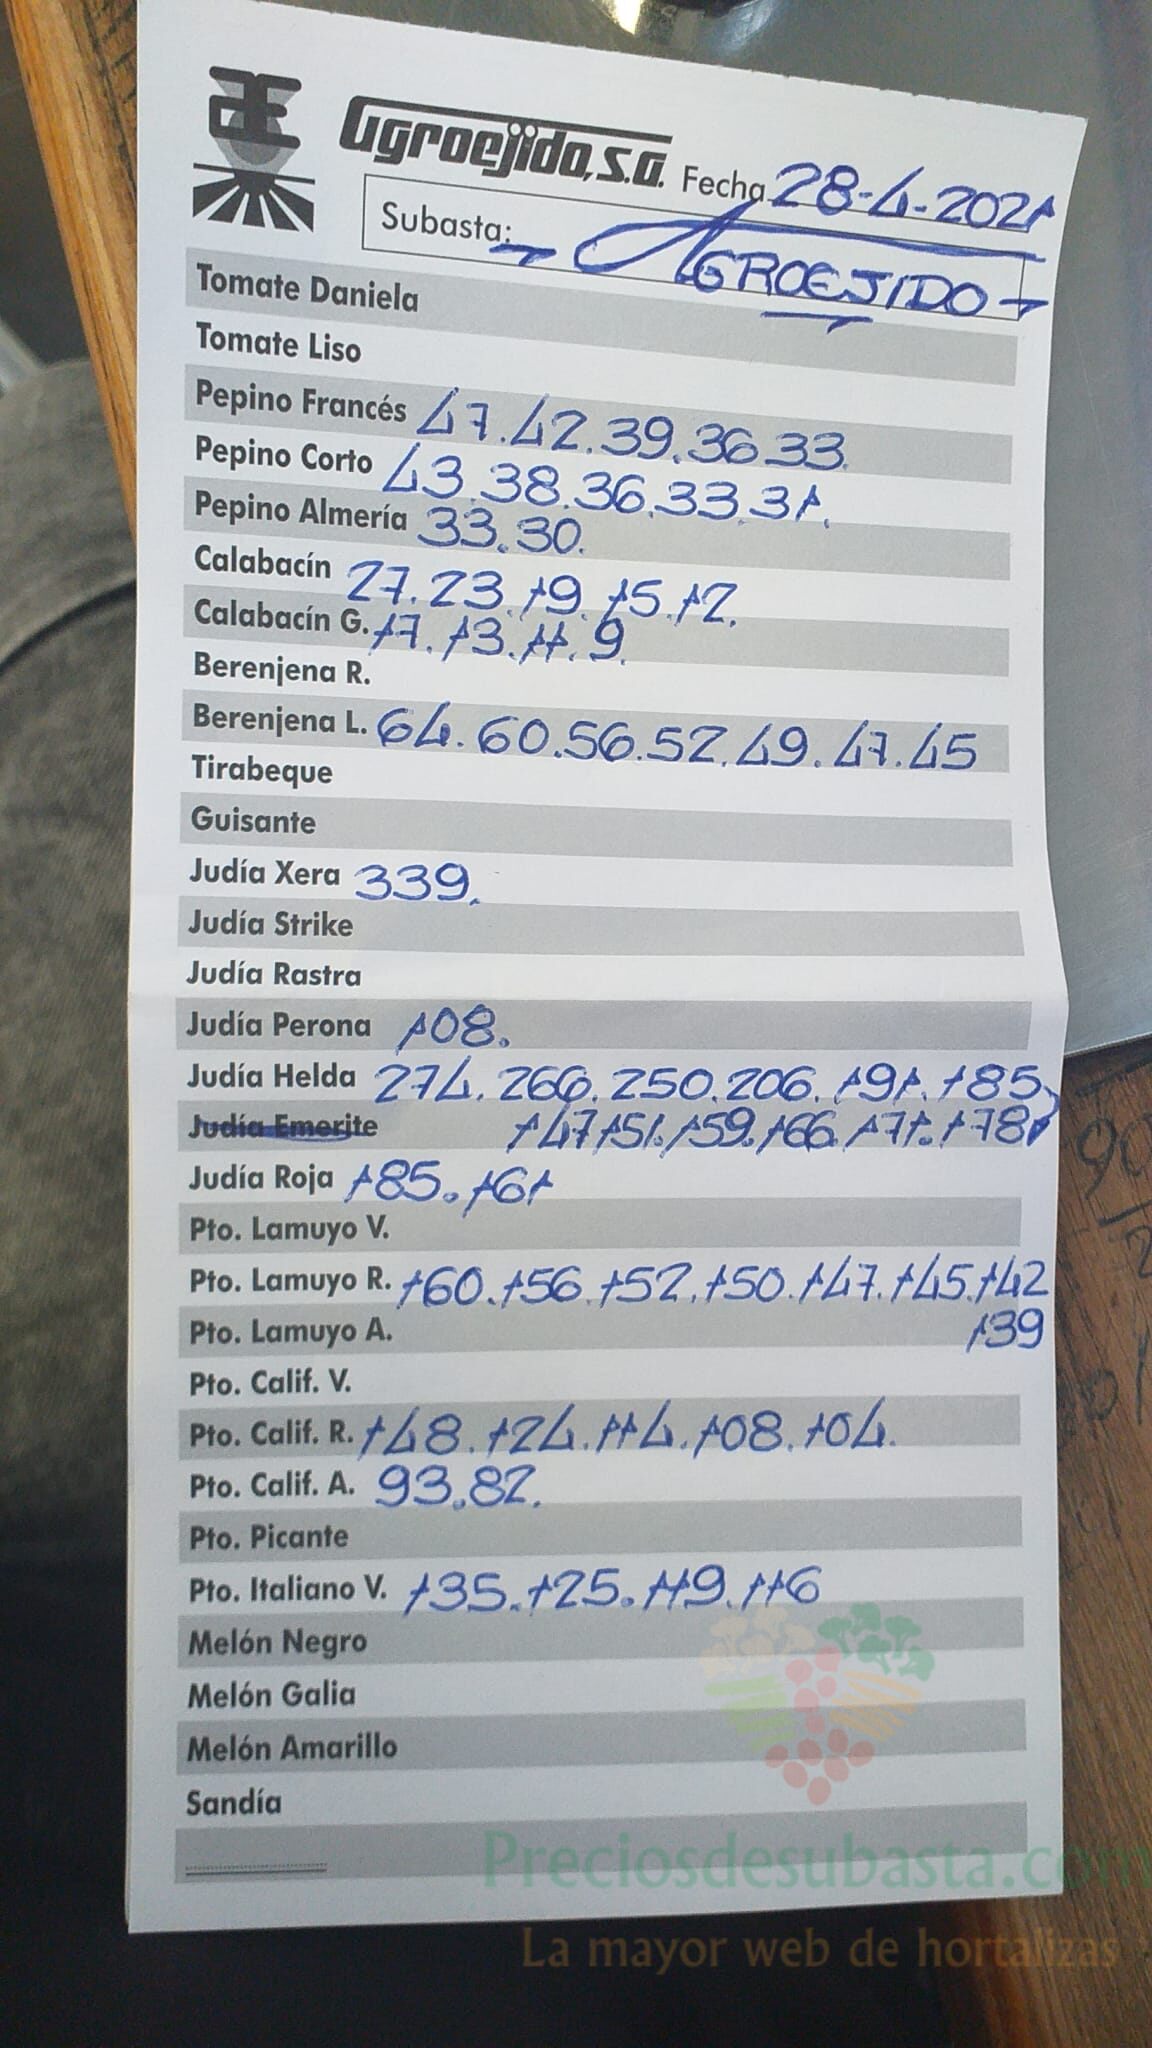 Agroejido, S.A. Fecha 28-4-2021
Subasta: AGROEJIDO
Tomate Daniela
Tomate Liso
Pepino Francés 47.42.39.36.33.
Pepino Corto 43.38.36.33.31.
Pepino Almería 33.30.
Calabacín 27.23.19.15.12.
Calabacín G. 17.13.11.9.
Berenjena R.
Berenjena L. 64.60.56.52.49.47.45
Tirabeque
Guisante
Judía Xera 339.
Judía Strike
Judía Rastra
Judía Perona 108.
Judía Helda 274.266.250.206.191.185
Judía Emerite 147.151.159.166.171.178
Judía Roja 185.161
Pto. Lamuyo V.
Pto. Lamuyo R. 160.156.152.150.147.145.142
Pto. Lamuyo A. 139
Pto. Calif. V.
Pto. Calif. R. 148.124.114.108.104.
Pto. Calif. A. 93.82.
Pto. Picante
Pto. Italiano V. 135.125.119.116
Melón Negro
Melón Galia
Melón Amarillo
Sandía
Preciosdesubasta.com
La mayor web de hortalizas